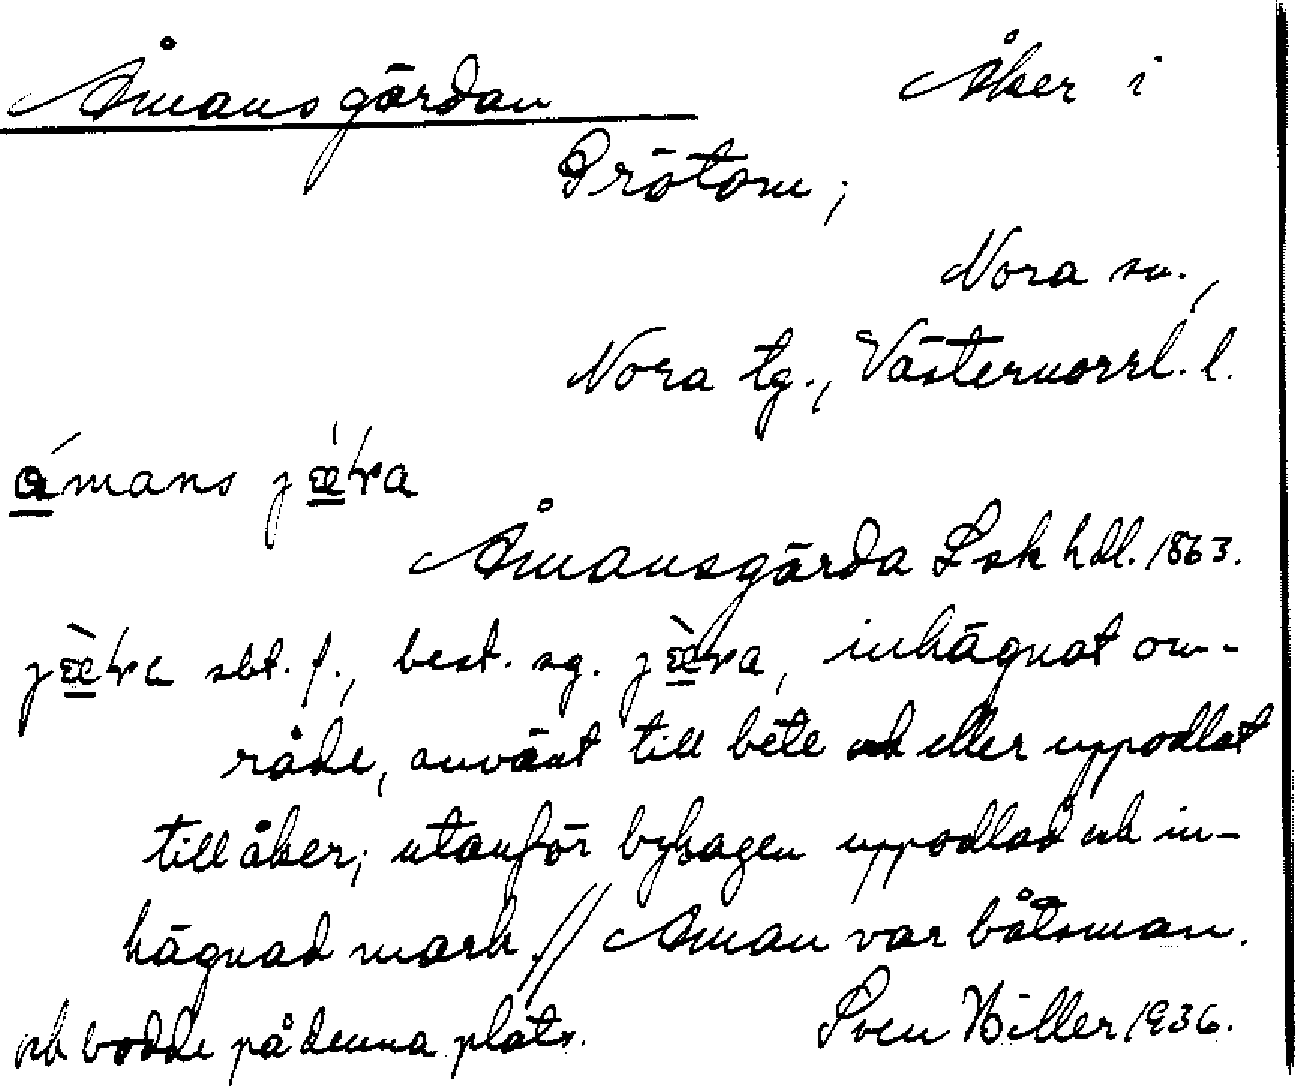 Åmansgärdan Åker i
Prästom;
Nora sn.,
Nora tg., Västernorrl. l.
åmans jæ̀ɽa
Åmansgärda Lsk hdl. 1863.
jæ̀ɽa sbt. f., best. sg. jæ̀ɽa, inhägnat om-
råde, använt till bete och eller uppodlat
till åker; utanför byhagen uppodlad och in-
hägnad mark. // Åman var båtsman.
och bodde på denna plats. Sven Hiller 1936.